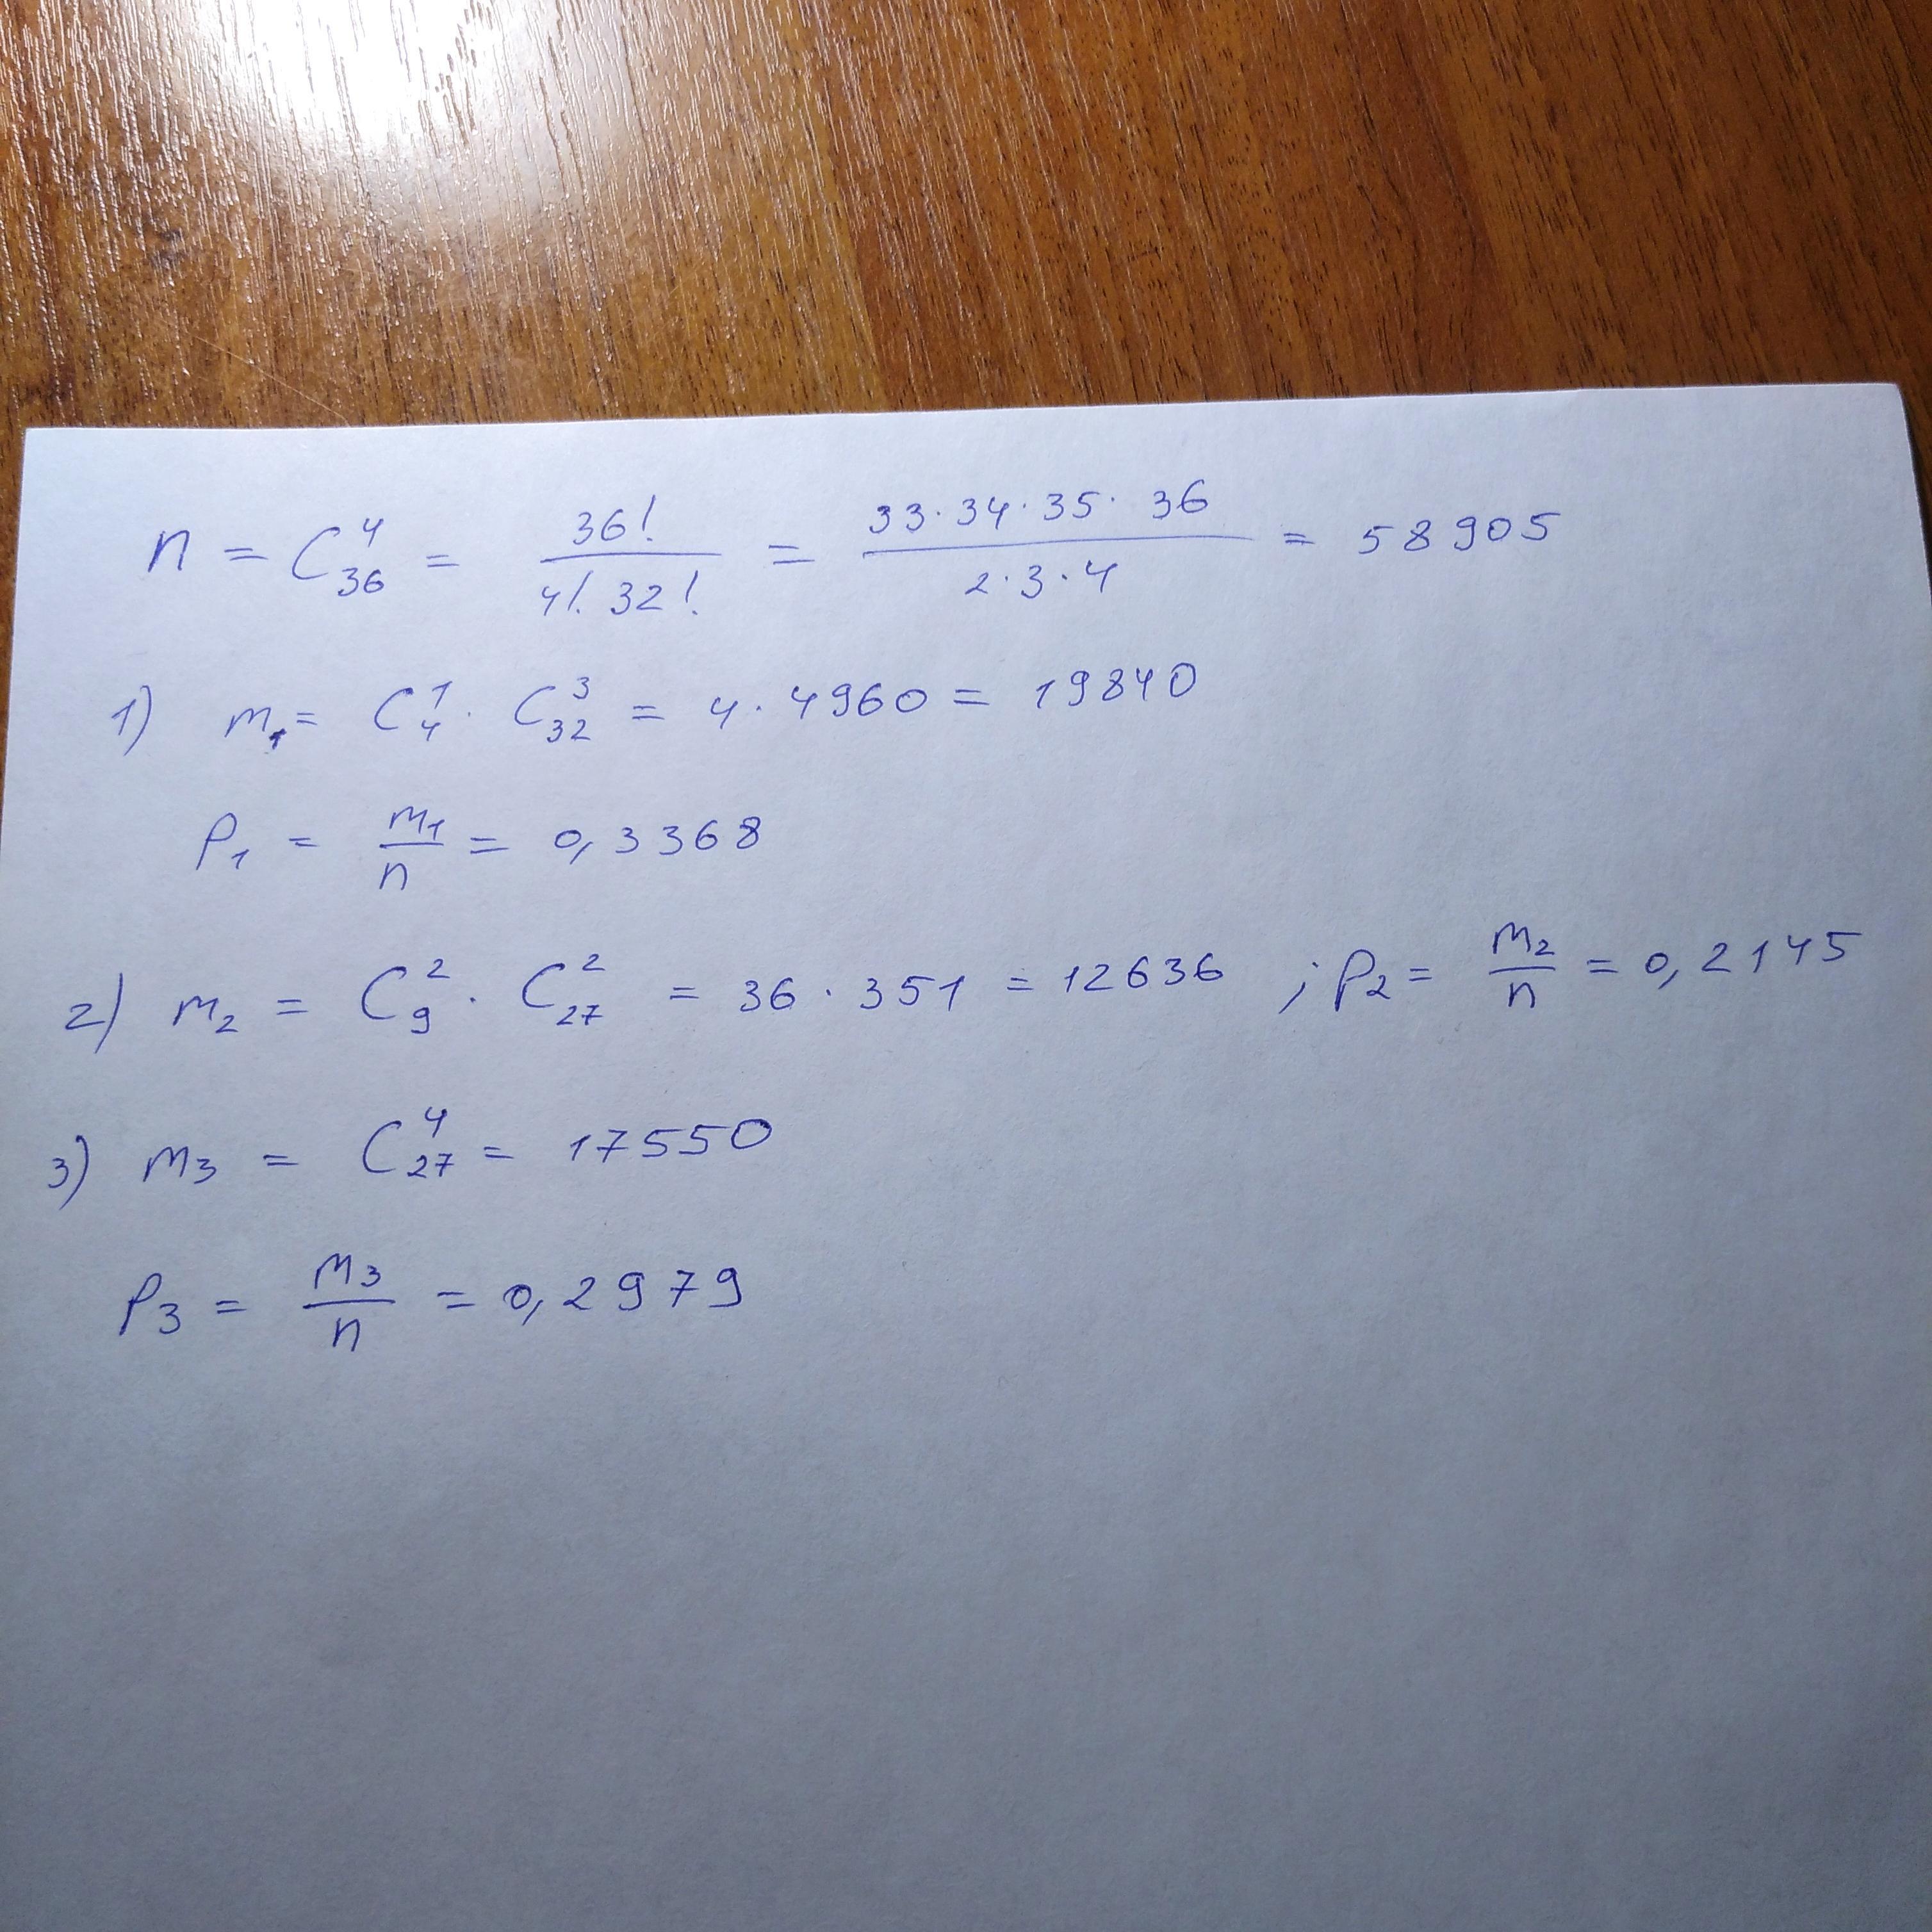 n = C₃₆⁴ = 36! / (4! 32!) = (33·34·35·36) / (2·3·4) = 58905
1) m₁ = C₄¹ · C₃₂³ = 4 · 4960 = 19840
P₁ = m₁ / n = 0,3368
2) m₂ = C₉² · C₂₇² = 36 · 351 = 12636 ; P₂ = m₂ / n = 0,2145
3) m₃ = C₂₇⁴ = 17550
P₃ = m₃ / n = 0,2979